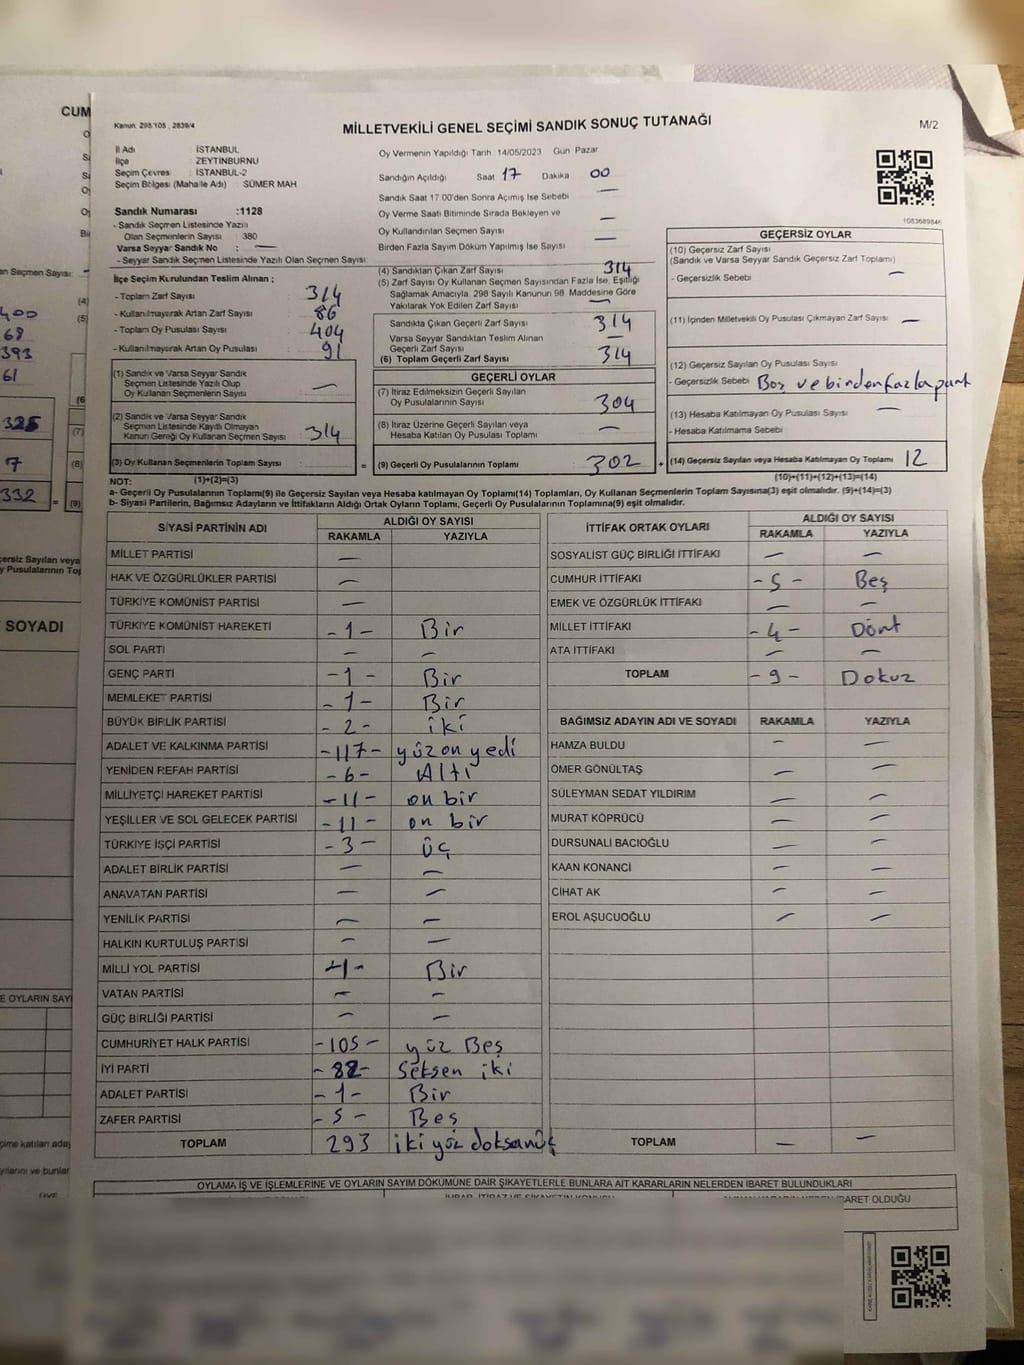 Kanun: 298/105 , 2839/4
MİLLETVEKİLİ GENEL SEÇİMİ SANDIK SONUÇ TUTANAĞI
M/2
İl Adı İSTANBUL
İlçe ZEYTİNBURNU
Seçim Çevres İSTANBUL-2
Seçim Bölgesi (Mahalle Adı) SÜMER MAH
Sandık Numarası :1128
- Sandık Seçmen Listesinde Yazılı
Olan Seçmenlerin Sayısı : 380
Varsa Seyyar Sandık No : —
- Seyyar Sandık Seçmen Listesinde Yazılı Olan Seçmen Sayısı:
Oy Vermenin Yapıldığı Tarih 14/05/2023 Gün Pazar
Sandığın Açıldığı Saat 17 Dakika 00
Sandık Saat 17.00'den Sonra Açılmış İse Sebebi —
Oy Verme Saati Bitiminde Sırada Bekleyen ve
Oy Kullandırılan Seçmen Sayısı —
Birden Fazla Sayım Döküm Yapılmış İse Sayısı —
1083689846
İlçe Seçim Kurulundan Teslim Alınan ;
- Toplam Zarf Sayısı : 314
- Kullanılmayarak Artan Zarf Sayısı : 86
- Toplam Oy Pusulası Sayısı : 404
- Kullanılmayarak Artan Oy Pusulası : 91
(1) Sandık ve Varsa Seyyar Sandık
Seçmen Listesinde Yazılı Olup
Oy Kullanan Seçmenlerin Sayısı : —
(2) Sandık ve Varsa Seyyar Sandık
Seçmen Listesinde Kayıtlı Olmayan
Kanun Gereği Oy Kullanan Seçmen Sayısı : 314
(3) Oy Kullanan Seçmenlerin Toplam Sayısı :
(4) Sandıktan Çıkan Zarf Sayısı 314
(5) Zarf Sayısı Oy Kullanan Seçmen Sayısından Fazla İse, Eşitliği
Sağlamak Amacıyla, 298 Sayılı Kanunun 98. Maddesine Göre
Yakılarak Yok Edilen Zarf Sayısı —
Sandıkta Çıkan Geçerli Zarf Sayısı 314
Varsa Seyyar Sandıktan Teslim Alınan
Geçerli Zarf Sayısı —
(6) Toplam Geçerli Zarf Sayısı 314
GEÇERLİ OYLAR
(7) İtiraz Edilmeksizin Geçerli Sayılan
Oy Pusulalarının Sayısı 304
(8) İtiraz Üzerine Geçerli Sayılan veya
Hesaba Katılan Oy Pusulası Toplamı —
= (9) Geçerli Oy Pusulalarının Toplamı 302
GEÇERSİZ OYLAR
(10) Geçersiz Zarf Sayısı
(Sandık ve Varsa Seyyar Sandık Geçersiz Zarf Toplamı)
- Geçersizlik Sebebi —
(11) İçinden Milletvekili Oy Pusulası Çıkmayan Zarf Sayısı —
(12) Geçersiz Sayılan Oy Pusulası Sayısı
- Geçersizlik Sebebi Boş ve birden fazla
(13) Hesaba Katılmayan Oy Pusulası Sayısı —
- Hesaba Katılmama Sebebi
+ (14) Geçersiz Sayılan veya Hesaba Katılmayan Oy Toplamı 12
NOT: (1)+(2)=(3) (10)+(11)+(12)+(13)=(14)
a- Geçerli Oy Pusulalarının Toplamı(9) ile Geçersiz Sayılan veya Hesaba katılmayan Oy Toplamı(14) Toplamları, Oy Kullanan Seçmenlerin Toplam Sayısına(3) eşit olmalıdır. (9)+(14)=(3)
b- Siyasi Partilerin, Bağımsız Adayların ve İttifakların Aldığı Ortak Oyların Toplamı, Geçerli Oy Pusulalarının Toplamına(9) eşit olmalıdır.
SİYASİ PARTİNİN ADI ALDIĞI OY SAYISI
RAKAMLA YAZIYLA
MİLLET PARTİSİ —
HAK VE ÖZGÜRLÜKLER PARTİSİ —
TÜRKİYE KOMÜNİST PARTİSİ —
TÜRKİYE KOMÜNİST HAREKETİ -1- Bir
SOL PARTİ — —
GENÇ PARTİ -1- Bir
MEMLEKET PARTİSİ -1- Bir
BÜYÜK BİRLİK PARTİSİ -2- iki
ADALET VE KALKINMA PARTİSİ -117- yüz on yedi
YENİDEN REFAH PARTİSİ -6- Altı
MİLLİYETÇİ HAREKET PARTİSİ -11- on bir
YEŞİLLER VE SOL GELECEK PARTİSİ -11- on bir
TÜRKİYE İŞÇİ PARTİSİ -3- üç
ADALET BİRLİK PARTİSİ — —
ANAVATAN PARTİSİ — —
YENİLİK PARTİSİ — —
HALKIN KURTULUŞ PARTİSİ — —
MİLLİ YOL PARTİSİ -1- Bir
VATAN PARTİSİ — —
GÜÇ BİRLİĞİ PARTİSİ — —
CUMHURİYET HALK PARTİSİ -105- yüz Beş
İYİ PARTİ -82- Seksen iki
ADALET PARTİSİ -1- Bir
ZAFER PARTİSİ -5- Beş
TOPLAM 293 iki yüz doksan üç
İTTİFAK ORTAK OYLARI ALDIĞI OY SAYISI
RAKAMLA YAZIYLA
SOSYALİST GÜÇ BİRLİĞİ İTTİFAKI — —
CUMHUR İTTİFAKI -5- Beş
EMEK VE ÖZGÜRLÜK İTTİFAKI — —
MİLLET İTTİFAKI -4- Dört
ATA İTTİFAKI — —
TOPLAM -9- Dokuz
BAĞIMSIZ ADAYIN ADI VE SOYADI RAKAMLA YAZIYLA
HAMZA BULDU — —
ÖMER GÖNÜLTAŞ — —
SÜLEYMAN SEDAT YILDIRIM — —
MURAT KÖPRÜCÜ — —
DURSUNALİ BACIOĞLU — —
KAAN KONANCİ — —
CİHAT AK — —
EROL AŞUCUOĞLU — —
TOPLAM — —
OYLAMA İŞ VE İŞLEMLERİNE VE OYLARIN SAYIM DÖKÜMÜNE DAİR ŞİKAYETLERLE BUNLARA AİT KARARLARIN NELERDEN İBARET BULUNDUKLARI
BARET OLDUĞU
CUM
an Seçmen Sayısı:
400
68
393
61
325
7
332
(4)
(5)
(7)
(8)
(9)
çersiz Sayılan veya
y Pusulalarının Top
SOYADI
E OYLARIN SAYI